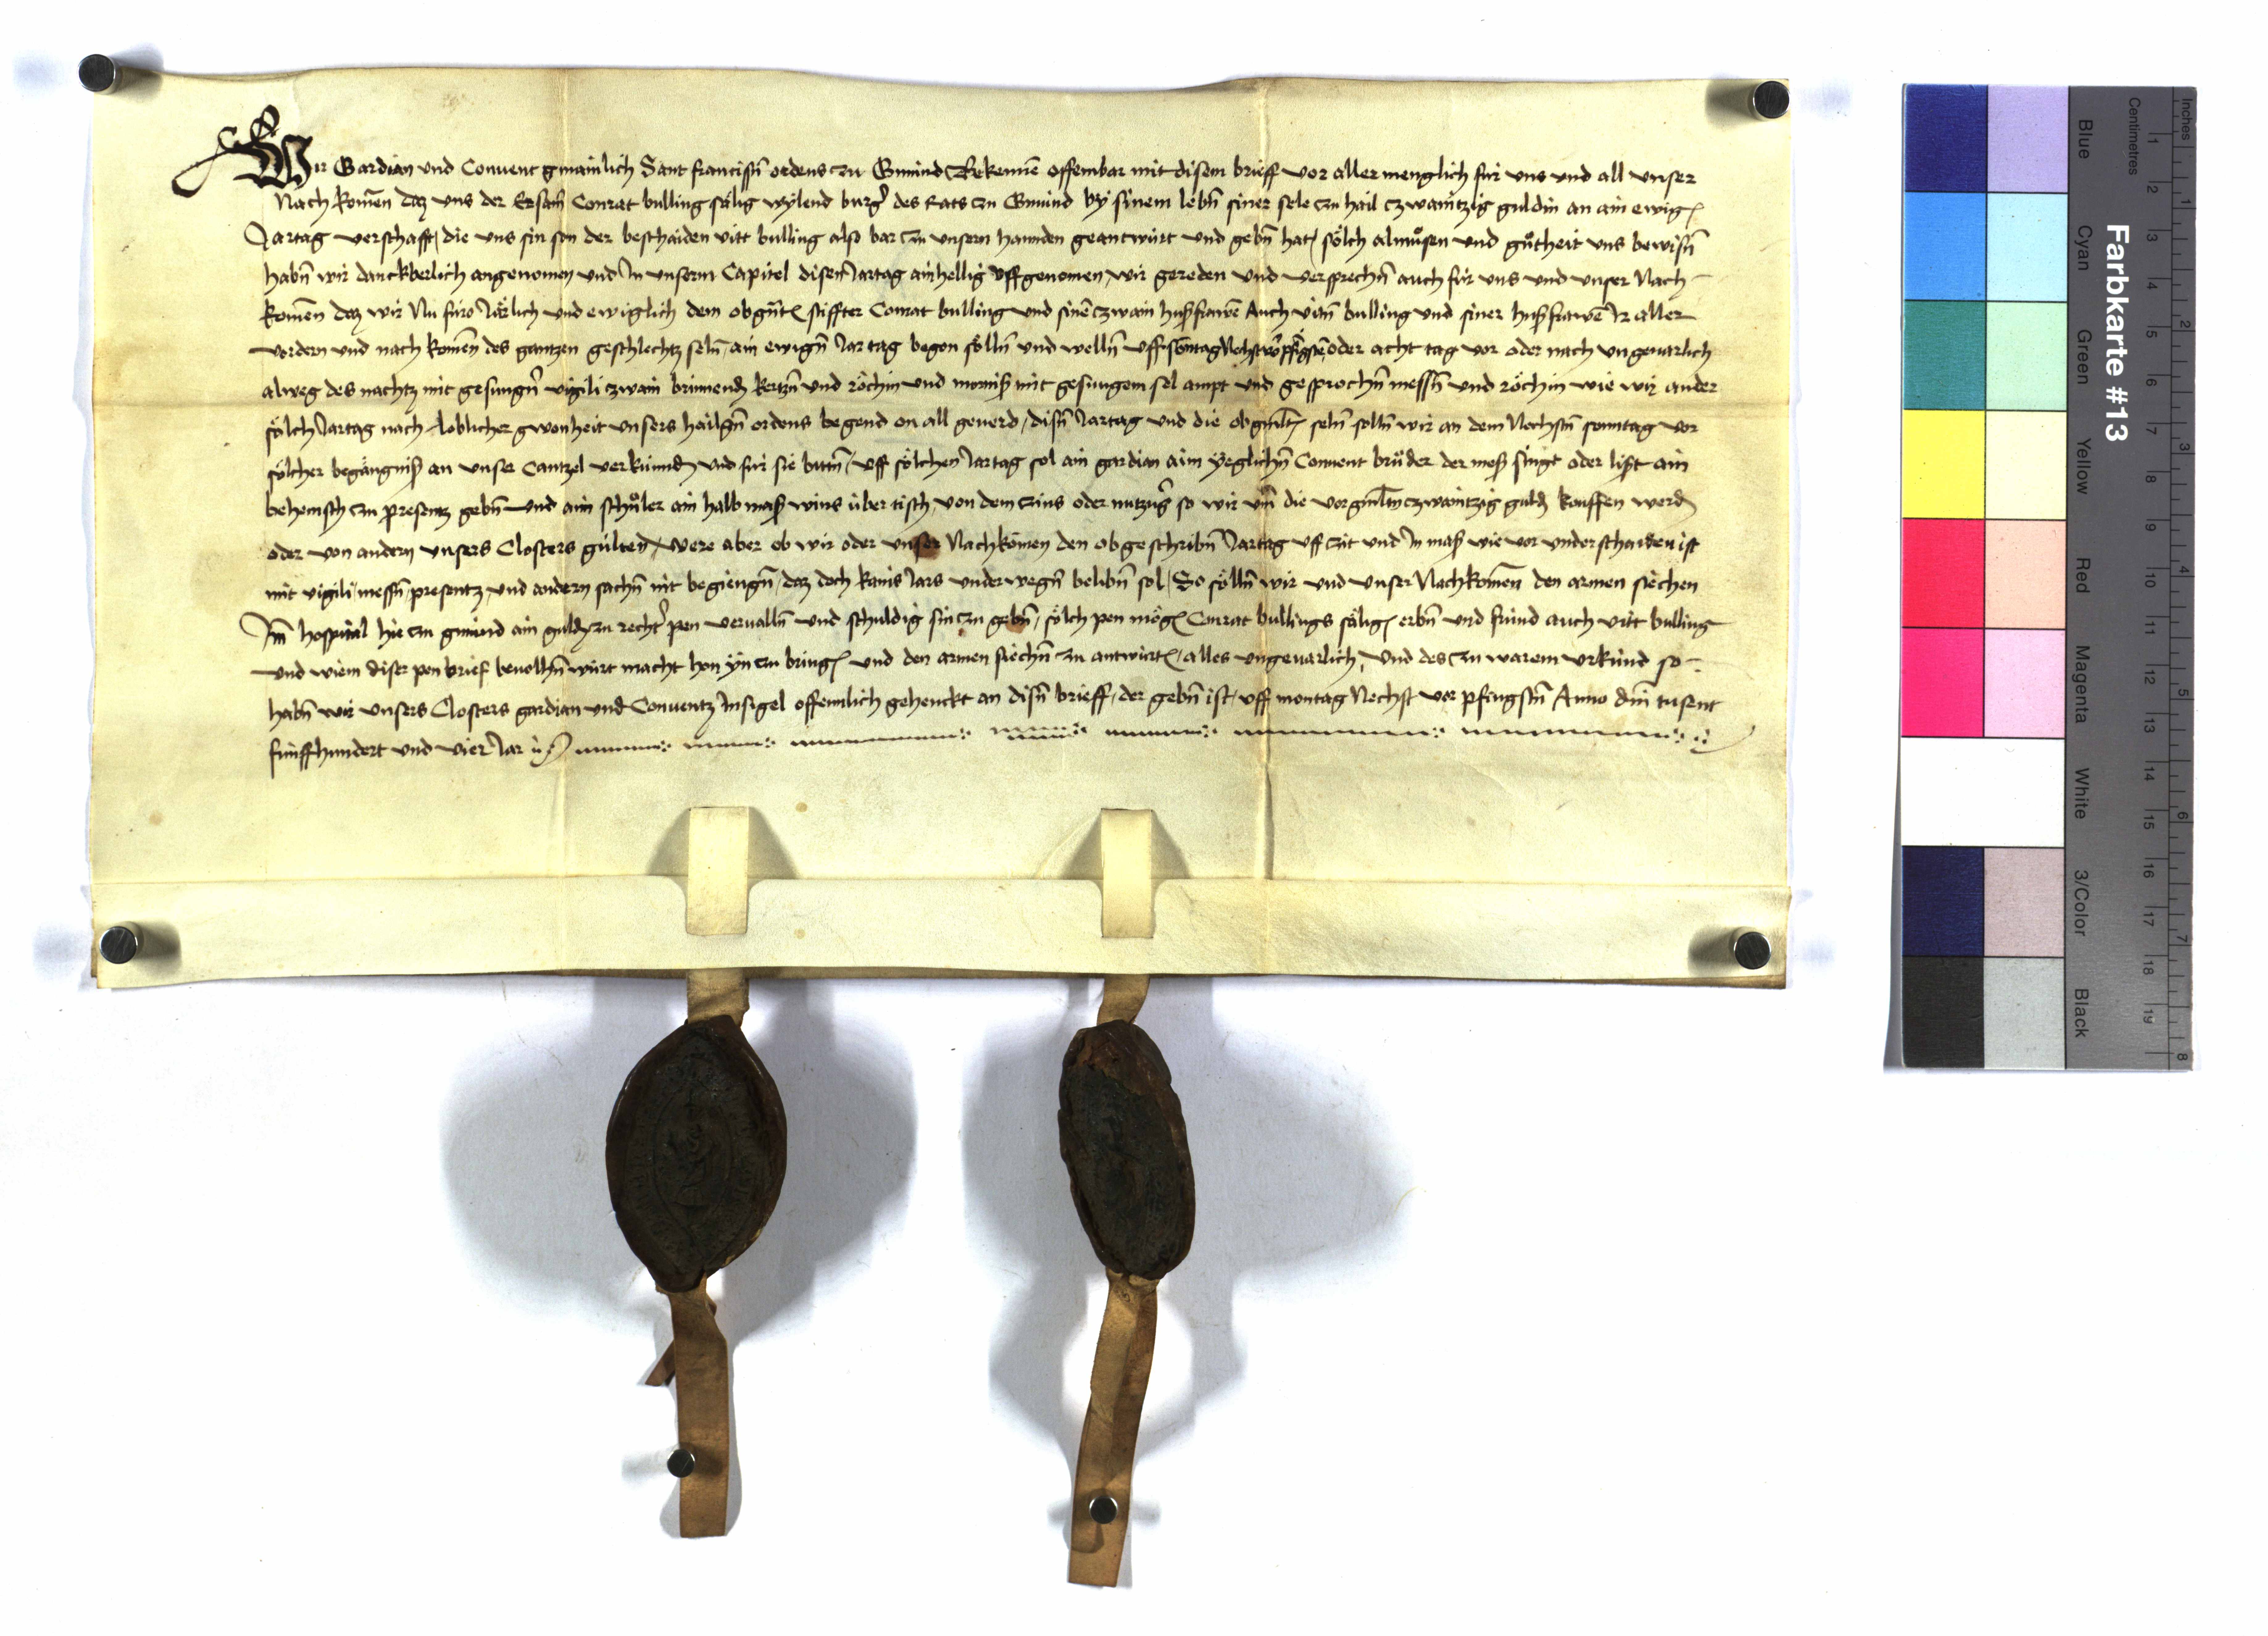 Wir Gardian und Convent gmainlich Sant francissn̄ ordens zu Gmünd Bekennē offembar mit disem brieff vor allermenglich für uns und all unser
Nachkomēn daz uns der Ersam̄ Conrat bulling sälig wylend burg' des Rats zu Gmünd by sinem lebn̄ siner sele zu hail czwaintzig guldin an ain ewig
Jartag verschafft, die uns sin son der beschaiden vitt bulling also bar zu unsern hannden geantwürt und gebn̄ hat, sölch almůsen und gůtheit uns bewisn̄
habn̄ wir danckberlich angenomen und In unserm Capitel disen Jartag ainhellig uffgenomen, wir gereden und versprechn̄ auch für uns und unser Nach-
komēn daz wir Nu füro Järlich und ewiglich dem obgn̄t stiffter Conrat bulling und sinē czwain hußfrawē Auch vittn̄ bulling und siner hußfrawē Ir aller
vordern und nachkomēn des gantzen geschlechtz seln̄ ain ewign̄ Jartag begon sölln̄ und welln̄ uff sonntag Nechst vor pfingstē oder acht tag vor oder nach ungevarlich
alweg des nachtz mit gesungn̄ vigili zwain brinnend kertzn̄ und röchin und mornß mit gesungem sel ampt und gesprochn̄ messn̄ und röchin wie wir ander
sölch Jartag nach loblicher gwonheit unsers hailgn̄ ordens begend on all geverd, disn̄ Jartag und die obgmlt seln̄ solln̄ wir an dem Nechstn̄ sonntag vor
sölcher begängniß an unser Cantzel verkünd und für sie bittn̄, uff sölchen Jartag sol ain gardian aim yeglichn̄ Convent brůder der meß singt oder lißt ain
behemsch zu presentz gebn̄ und aim schůler ain halb maß wins über tisch, von dem zins oder nutzūg so wir um̄ die vorgmltn̄ czwaintzig guld kouffen werd
oder von andern unsers Closters gülten, Were aber ob wir oder unser Nachkomen den obgeschribn̄ Jartag uff zit und In maß wie vor underschaiden ist
mit vigili, messn̄, presentz, und andern sachn̄ nit begiengn̄, daz doch kains Jars underwegn̄ belibn̄ sol, So sölln̄ wir und unser Nachkomēn den armen siechen
Im hospital hie zu gmünd ain guld zu recht' pen vervalln̄ und schuldig sin zu gebn̄, sölch pen mög Conrat bullings sälig erbn̄ und fründ auch vitt bulling
und wiem diser pen brief bevolhn̄ würt macht hon yn zu bring und den armen siechn̄ zu antwürt, alles ungevarlich, Und des zu warem urkünd so
habn̄ wir unsers Closters gardian und Conventz Insigel offennlich gehenckt an disn̄ brieff, der gebn̄ ist, uff montag Nechst vor pfingstn̄ Anno dn̄i tusent
fünffhundert und vier Jar
Farbkarte #13
Centimetres
Inches
Blue
Cyan
Green
Yellow
Red
Magenta
White
3/Color
Black
1 2 3 4 5 6 7 8 9 10 11 12 13 14 15 16 17 18 19
1 2 3 4 5 6 7 8